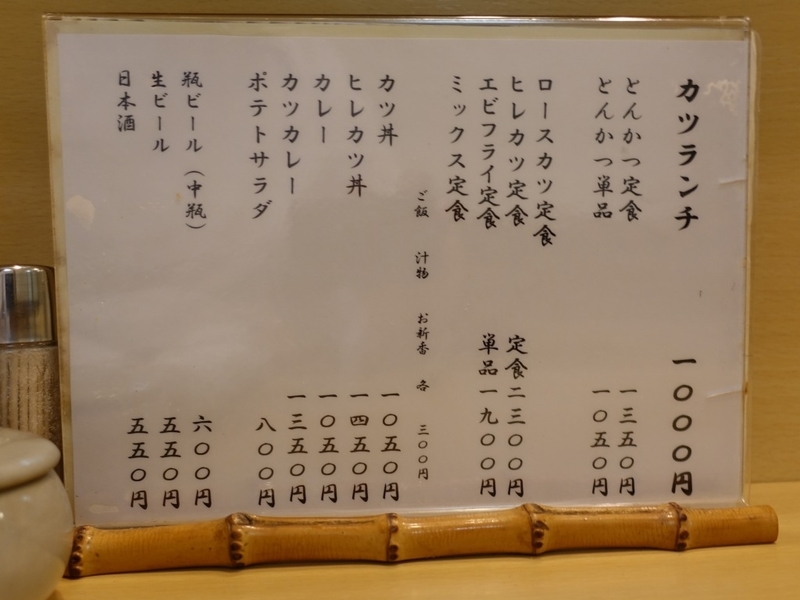 カツランチ 一〇〇〇円
とんかつ定食 一三五〇円
とんかつ単品 一〇五〇円
ロースカツ定食
ヒレカツ定食 定食 二三〇〇円
エビフライ定食 単品 一九〇〇円
ミックス定食
ご飯 汁物 お新香 各 三〇〇円
カツ丼 一〇五〇円
ヒレカツ丼 一四五〇円
カレー 一〇五〇円
カツカレー 一三五〇円
ポテトサラダ 八〇〇円
瓶ビール(中瓶) 六〇〇円
生ビール 五五〇円
日本酒 五五〇円